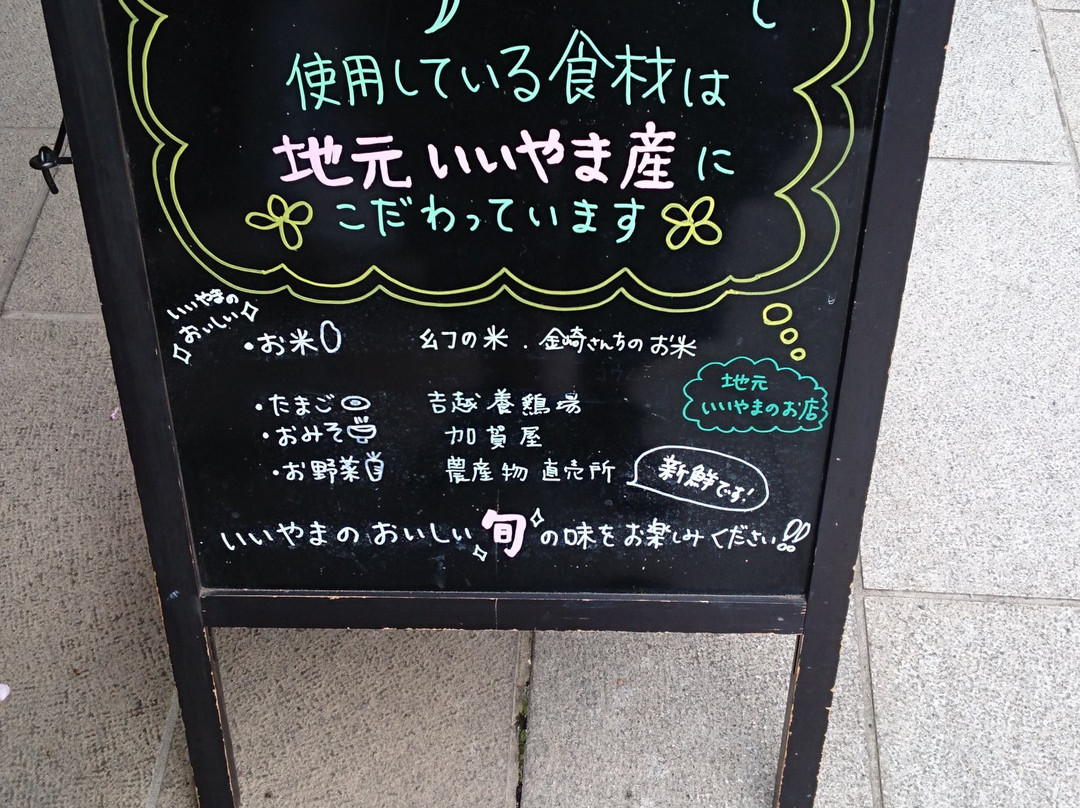 使用している食材は
地元いいやま産に
こだわっています
いいやまの
おいしい
・お米 幻の米．金崎さんちのお米
地元
いいやまのお店
・たまご 吉越養鶏場
・おみそ 加賀屋
・お野菜 農産物直売所
新鮮です!
いいやまのおいしい旬の味をお楽しみください!!